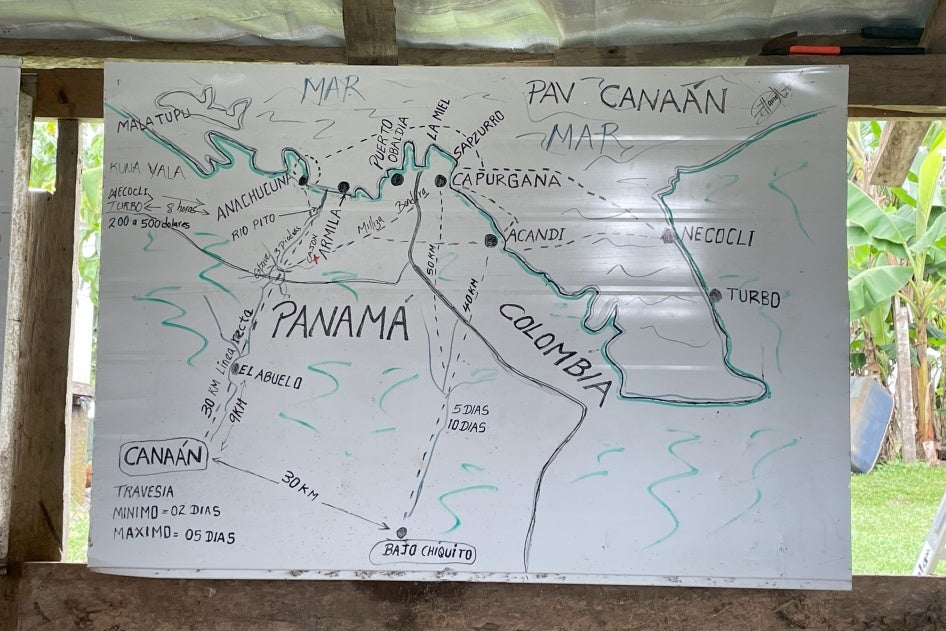 MAR
PAV CANAÁN
MALATUPU
MAR
PUERTO
OBALDIA
LA MIEL
SAPZURRO
KUNA YALA
NECOCLI
TURBO 8 horas
200 a 500 dolares
ANACHUCUNA
RIO PITO
ARMILA
CAPURGANA
ACANDI
NECOCLI
TURBO
50 KM
40 KM
PANAMÁ
COLOMBIA
30 KM Linea recta
9KM
EL ABUELO
5 DIAS
10 DIAS
CANAÁN
30 KM
TRAVESIA
MINIMO = 02 DIAS
MAXIMO = 05 DIAS
BAJO CHIQUITO